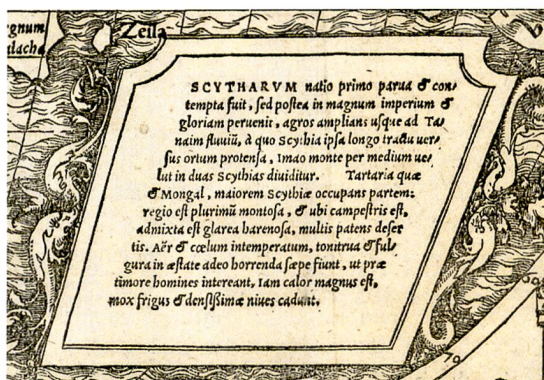 gnum
alacha
Zeila
V
SCYTHARVM natio primo parua & con-
tempta fuit, sed postea in magnum imperium &
gloriam peruenit, agros amplians usque ad Ta-
naim fluuiũ, à quo Scythia ipsa longo tractu uer-
sus ortum protensa, Imao monte per medium ue-
lut in duas Scythias diuiditur. Tartaria quæ
& Mongal, maiorem Scythiæ occupans partem:
regio est plurimũ montosa, & ubi campestris est,
admixta est glarea harenosa, multis patens deser
tis. Aër & cœlum intemperatum, tonitrua & ful-
gura in æstate adeo horrenda sæpe fiunt, ut præ
timore homines intereant, Iam calor magnus est,
mox frigus & densissimæ niues cadunt.
70